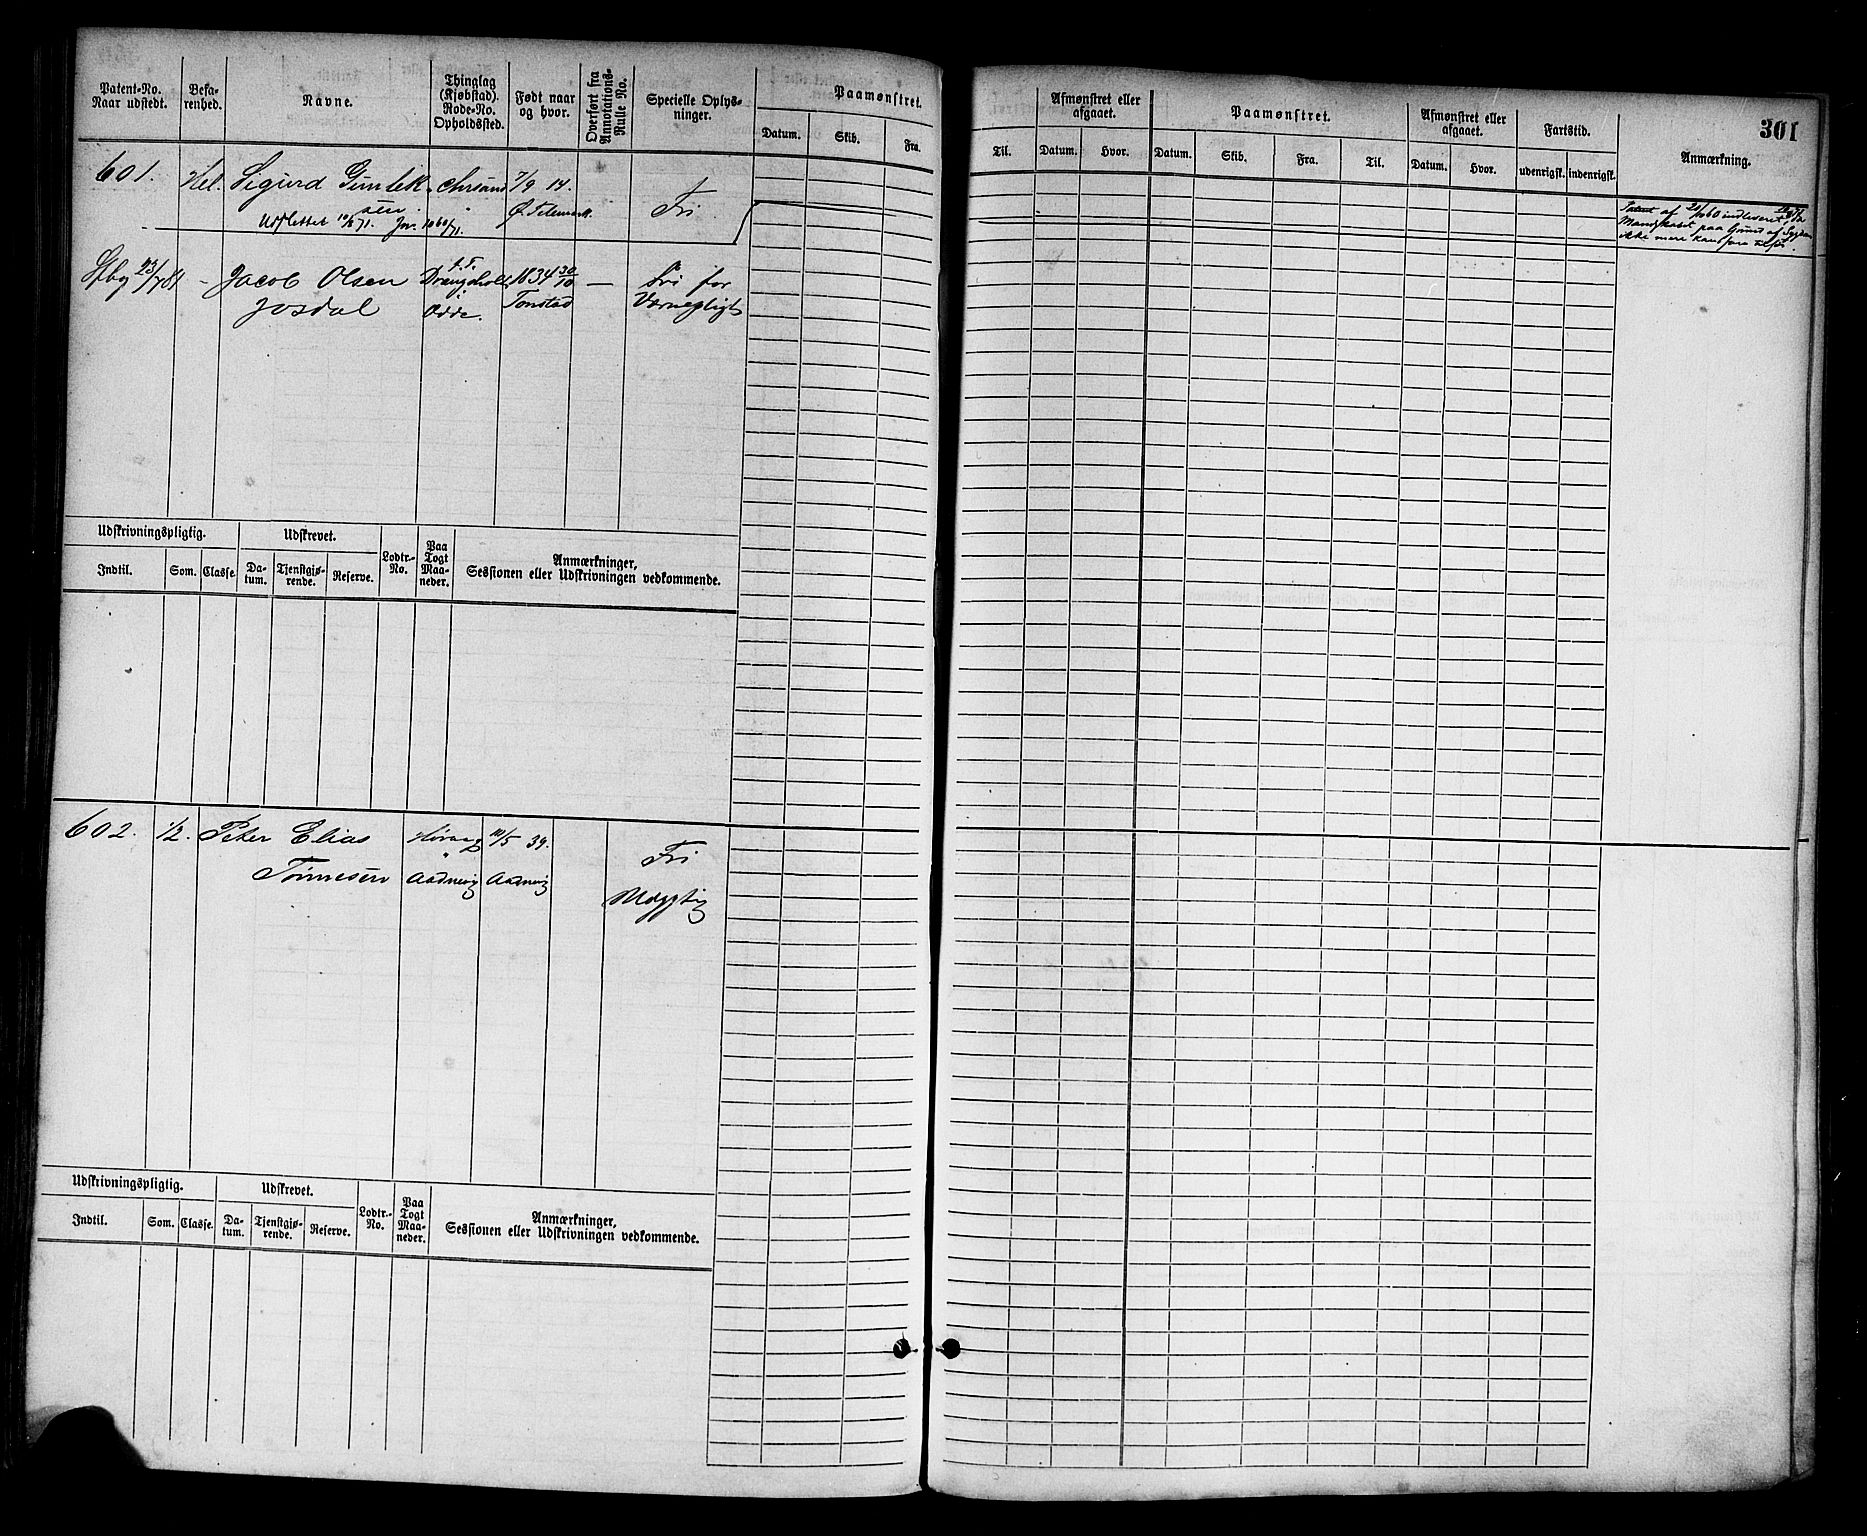 Patent-No. Naar udstedt.
Befarenhed.
Navne.
Thinglag (Kjøbstad). Rode-No. Opholdssted.
Født naar og hvor.
Overført fra Annotations-Rulle No.
Specielle Oplysninger.
Paamønstret.
Datum. Skib. Fra.
Til.
Afmønstret eller afgaaet.
Datum. Hvor.
Paamønstret.
Datum. Skib. Fra. Til.
Afmønstret eller afgaaet.
Datum. Hvor.
Fartstid.
udenrigsk. indenrigsk.
Anmærkning.
301
601. Hel. Sigurd Gunlek- Chrsand 7/9 14. Fri
sen " Ø. Telemark.
Udslettet 10/8 71. Jnr. 1060/71.
Mandskabet paa Grund af
ikke mere kan fare tilsøs.
Hbg 23/7 81 - Jacob Olsen Drangsholt 1834 30/10 — Fri for
Josdal Odde. Tonstad Værnepligt
Udskrivningspligtig. Udskrevet. Lodtr.-No. Paa Togt Maaneder. Anmærkninger, Sessionen eller Udskrivningen vedkommende.
Indtil. Som. Classe. Datum. Tjenstgjørende. Reserve.
602. 1/2. Peter Elias 10/5 39. Fri
Tönnesen Aadnevig Aadnevig
Udskrivningspligtig. Udskrevet. Lodtr.-No. Paa Togt Maaneder. Anmærkninger, Sessionen eller Udskrivningen vedkommende.
Indtil. Som. Classe. Datum. Tjenstgjørende. Reserve.